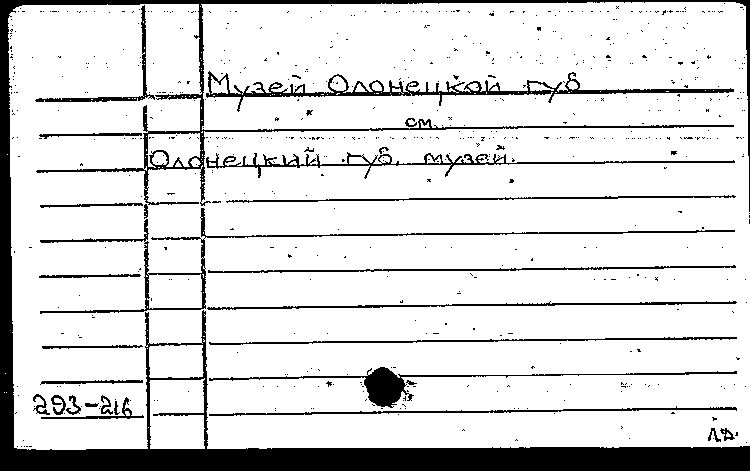 Музей Олонецкой губ
см.
Олонецкий губ. музей.
293-216
Л.Д.